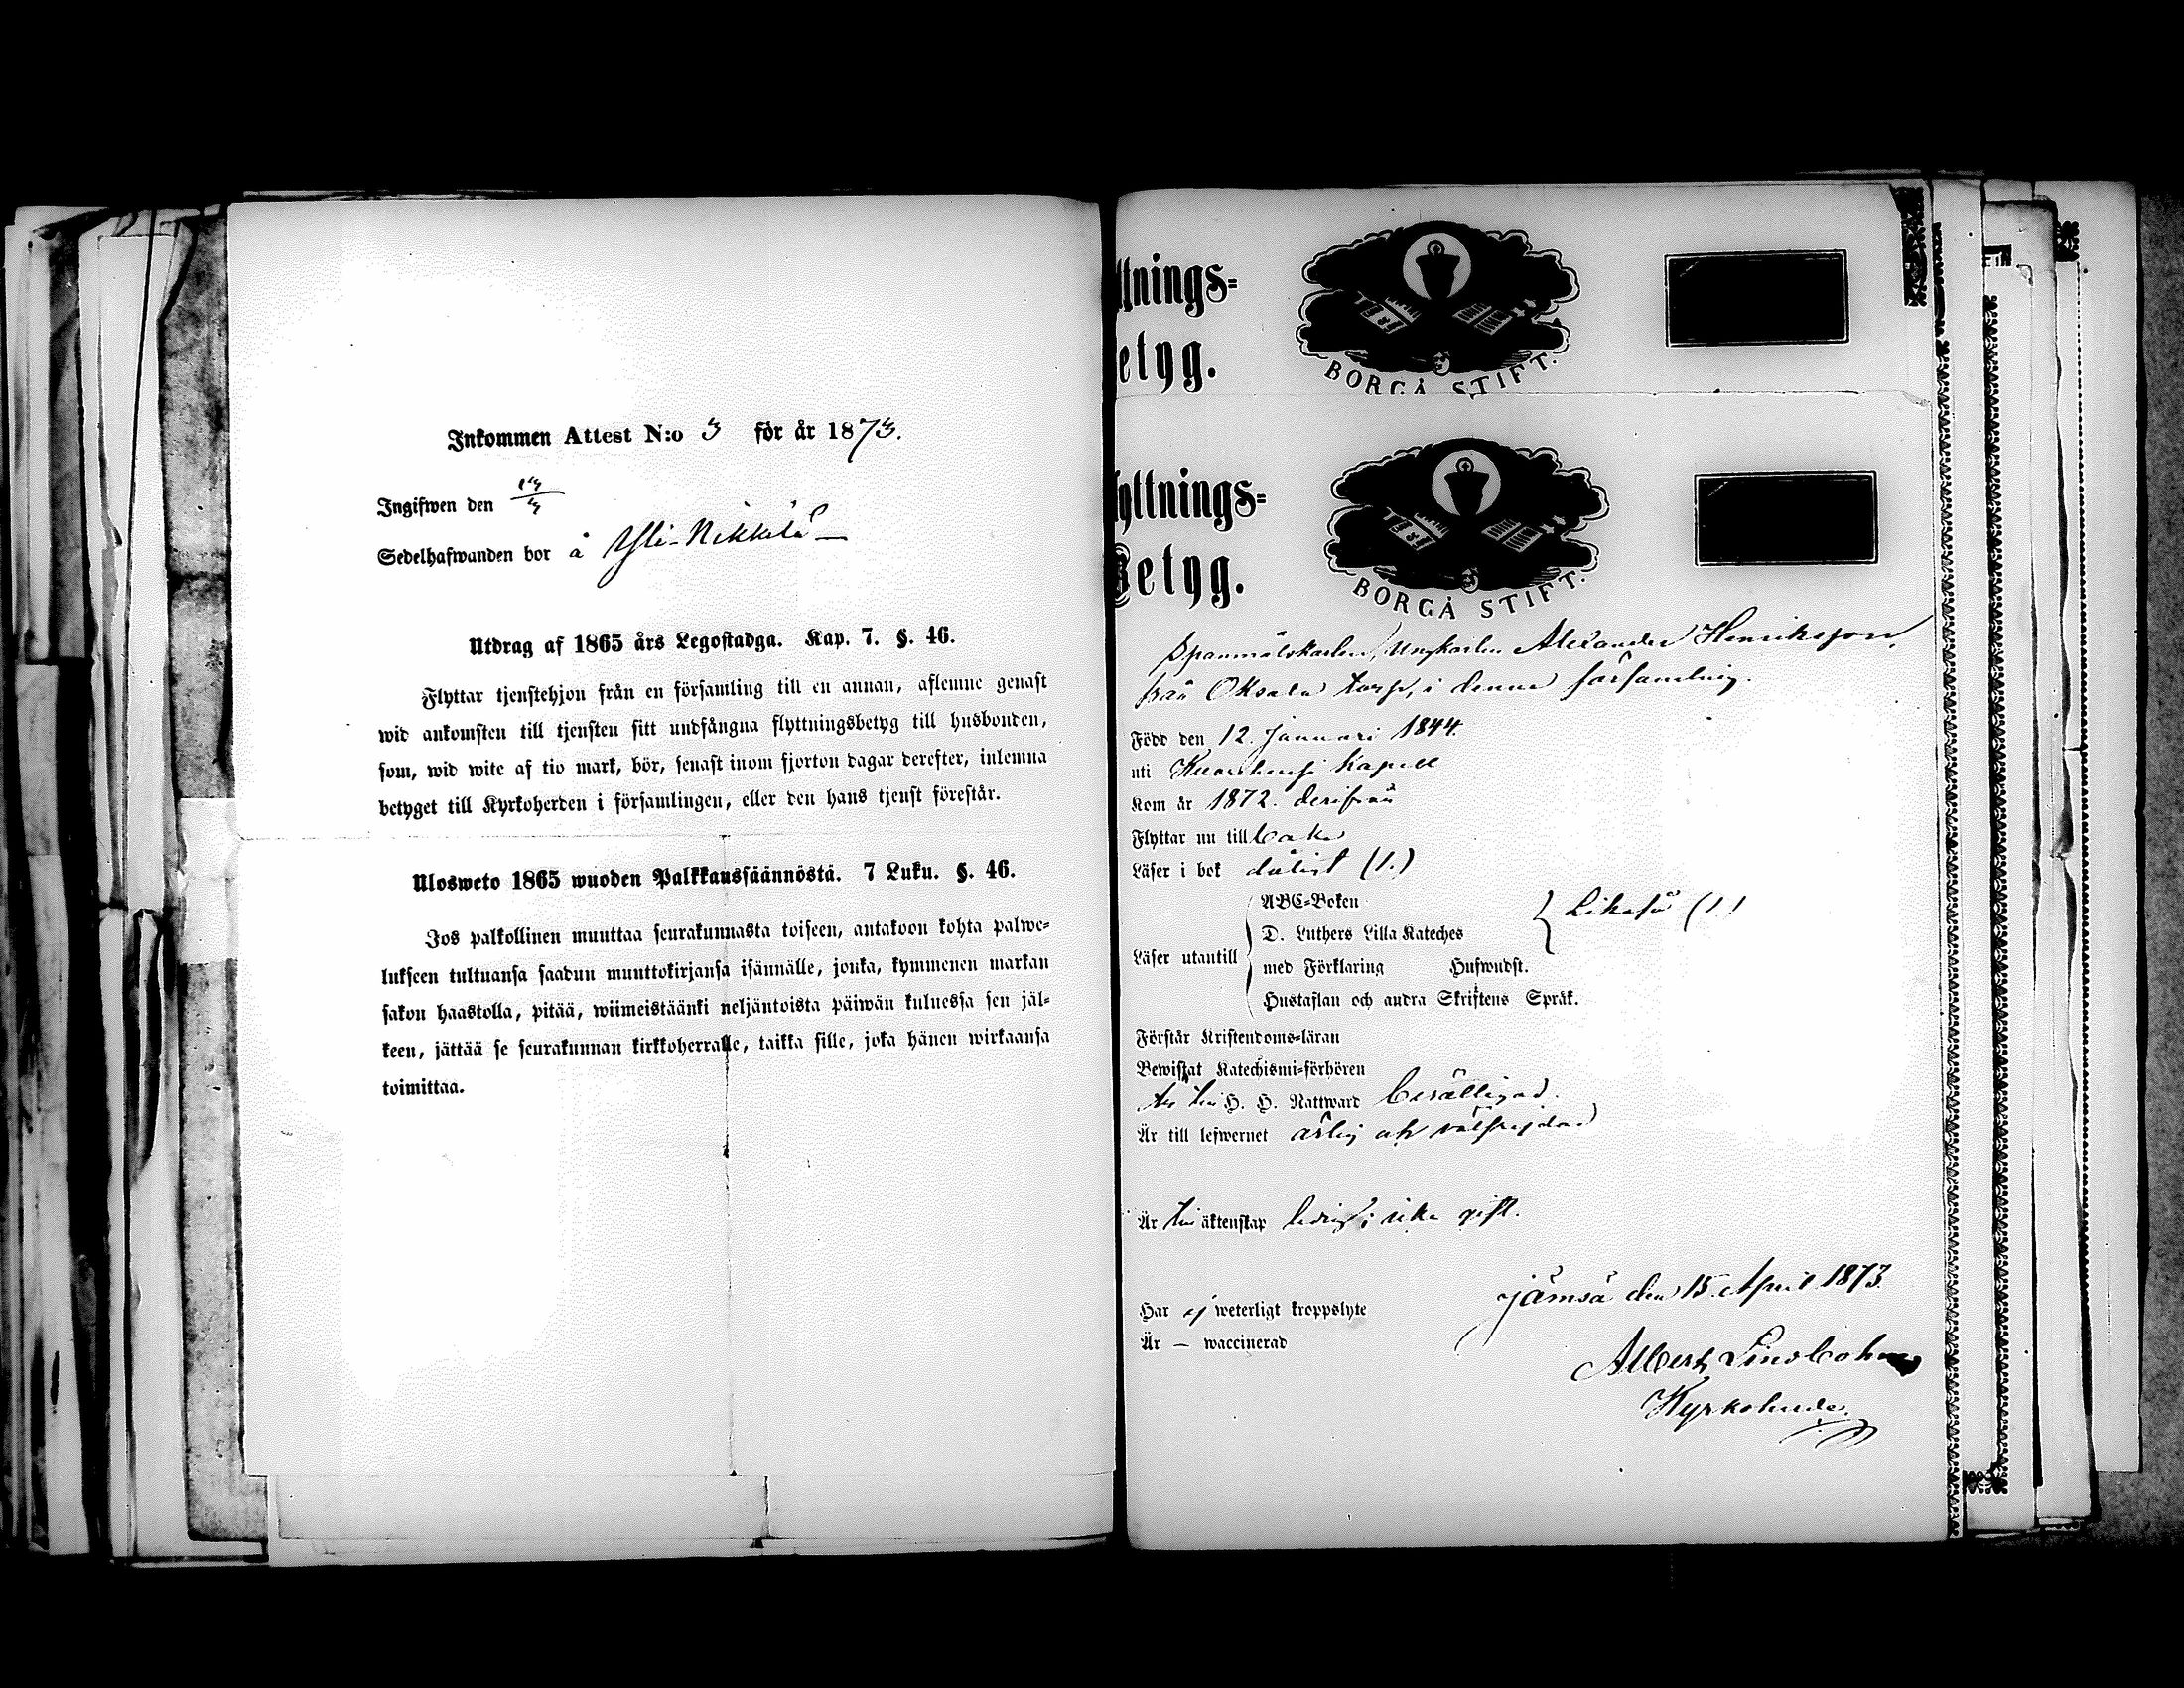 Inkommen Attest N:o 3 för år 1873.
Ingifwen den
Sedelhafwanden bor å Yli-Nikkilä
Utdrag af 1865 års Legostadga. Kap. 7. §. 46.
Flyttar tjenstehjon från en församling till en annan, aflemne genast
wid ankomsten till tjensten sitt undfångna flyttningsbetyg till husbonden,
som, wid wite af tio mark, bör, senast inom fjorton dagar derefter, inlemna
betyget till Kyrkoherden i församlingen, eller den hans tjenst förestår.
Ulosweto 1865 wuoden Palkkaussäännöstä. 7 Luku. §. 46.
Jos palkollinen muuttaa seurakunnasta toiseen, antakoon kohta palwe-
lukseen tultuansa saadun muuttokirjansa isännälle, jonka, kymmenen markan
sakon haastolla, pitää, wiimeistäänki neljäntoista päiwän kuluessa sen jäl-
keen, jättää se seurakunnan kirkkoherralle, taikka sille, joka hänen wirkaansa
toimittaa.
ttnings-
etyg.
BORGÅ STIFT.
yttnings-
Betyg.
BORGÅ STIFT.
Spanmålskarlen, Ungkarlen Alexander Henriksson,
från Oksala torp, i denna församling.
Född den 12. Januari 1844.
uti Kuorehvesi Kapell
Kom år 1872. derifrån
Flyttar nu till baka
Läser i bok dåligt (1.)
ABC-Boken
D. Luthers Lilla Kateches
Läser utantill
med Förklaring Hufwudst.
Hustaflan och andra Skriftens Språk.
Likaså (1.)
Förstår Kristendoms-läran
Bewistat Katechismi-förhören
Är till H. H. Nattward berättigad.
Är till lefwernet ärlig och välfrejdad
Är till äktenskap ledig; icke gift.
Jämsä den 15. April 1873.
Har ej weterligt kroppslyte
Är — waccinerad
Albert Lindbohm
Kyrkoherde.